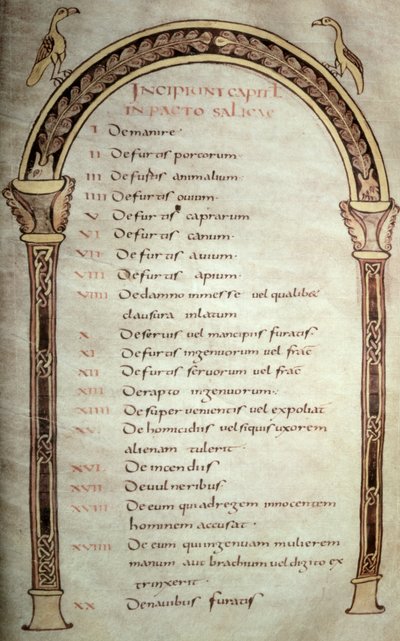 INCIPIUNT CAPITŁ
IN PACTO SALICAE
I De manire·
II De furtis porcorum·
III De furtis animalium·
IIII De furtis ovium·
V De furtis caprarum
VI De furtis canum·
VII De furtis avium·
VIII De furtis apium·
VIIII De damno inmesse vel qualibec
clausura inlatum
X De servis vel mancipiis furatis·
XI De furtis ingenuorum vel frac̄
XII De furtis servorum vel frac̄
XIII De rapto ingenuorum·
XIIII De super venientis vel expoliat̄
XV De homicidiis vel siquis uxorem
alienam tulerit·
XVI De incendiis
XVII De vulneribus
XVIII De eum qui adregem innocentem
hominem accusat·
XVIIII De eum qui ingenuam mulierem
manum aut brachium vel digito ex
trinxerit·
XX De navibus furatis